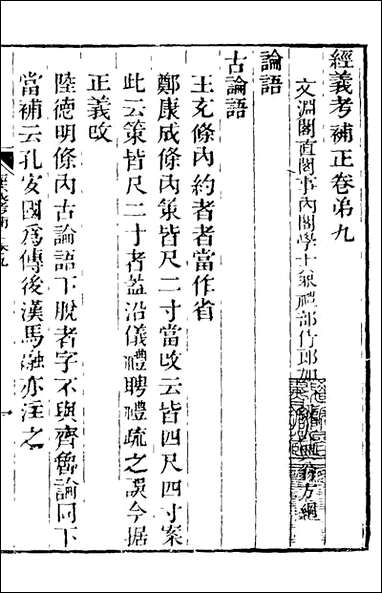 經義考補正卷弟九
文淵閣直閣事內閣學士兼禮部侍郎加
翁方綱
論語
古論語
王充條內約者者當作省
鄭康成條內策皆尺二寸當改云皆四尺四寸案
此云策皆尺二寸者葢沿儀禮聘禮疏之誤今据
正義改
陸德明條內古論語下脫者字不與齊魯論同下
當補云孔安國爲傳後漢馬融亦注之